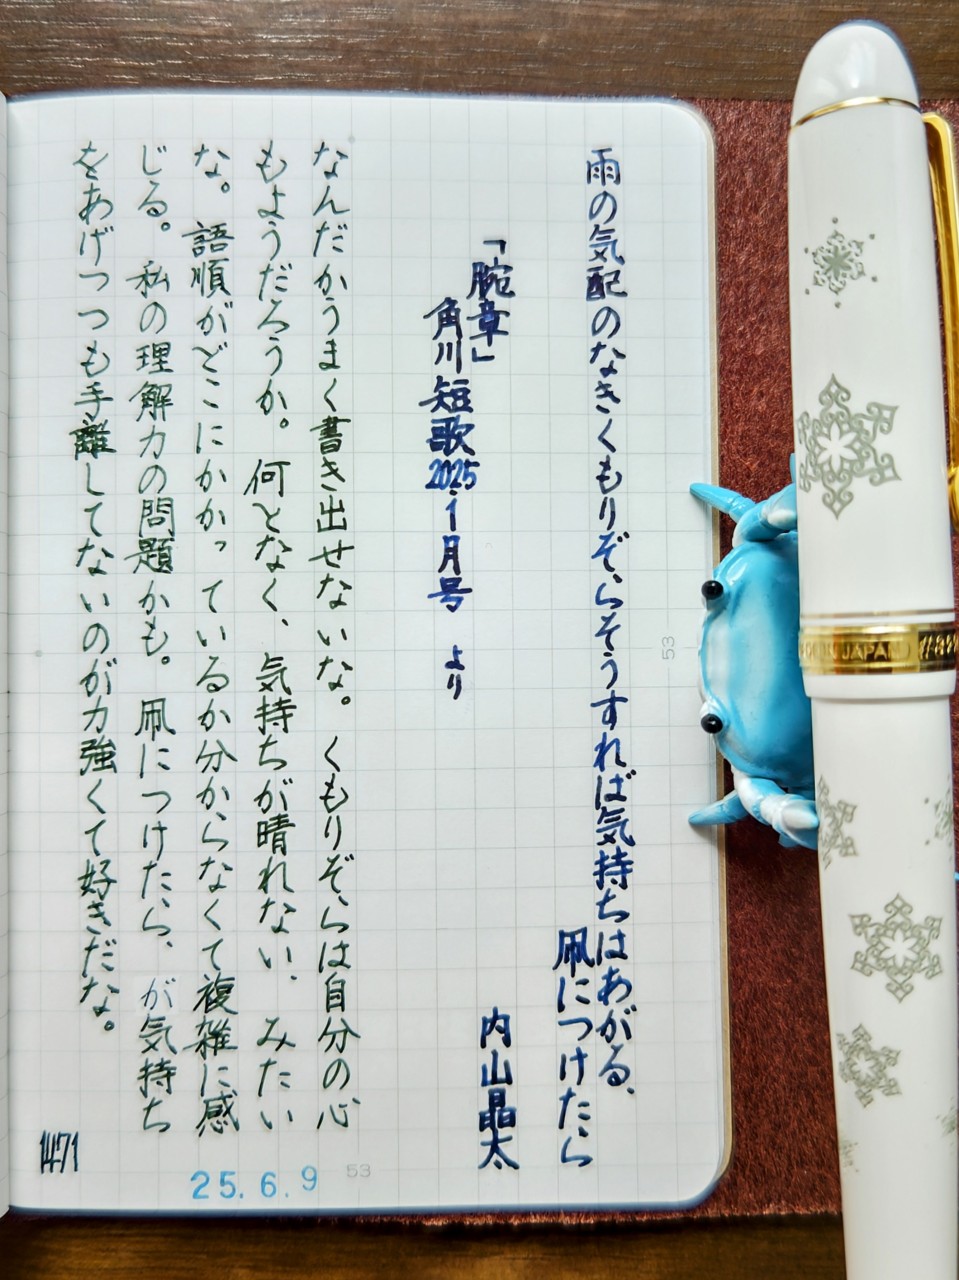 雨の気配のなきくもりぞらそうすれば気持ちはあがる、
凧につけたら
「腕章」
内山晶太
角川短歌2025.1月号 より
なんだかうまく書き出せないな。くもりぞらは自分の心
もようだろうか。何となく、気持ちが晴れない、みたい
な。語順がどこにかかっているか分からなくて複雑に感
じる。私の理解力の問題かも。凧につけたら、が気持ち
をあげつつも手離してないのが力強くて好きだな。
1471
25.6.9
53
53
JAPAN